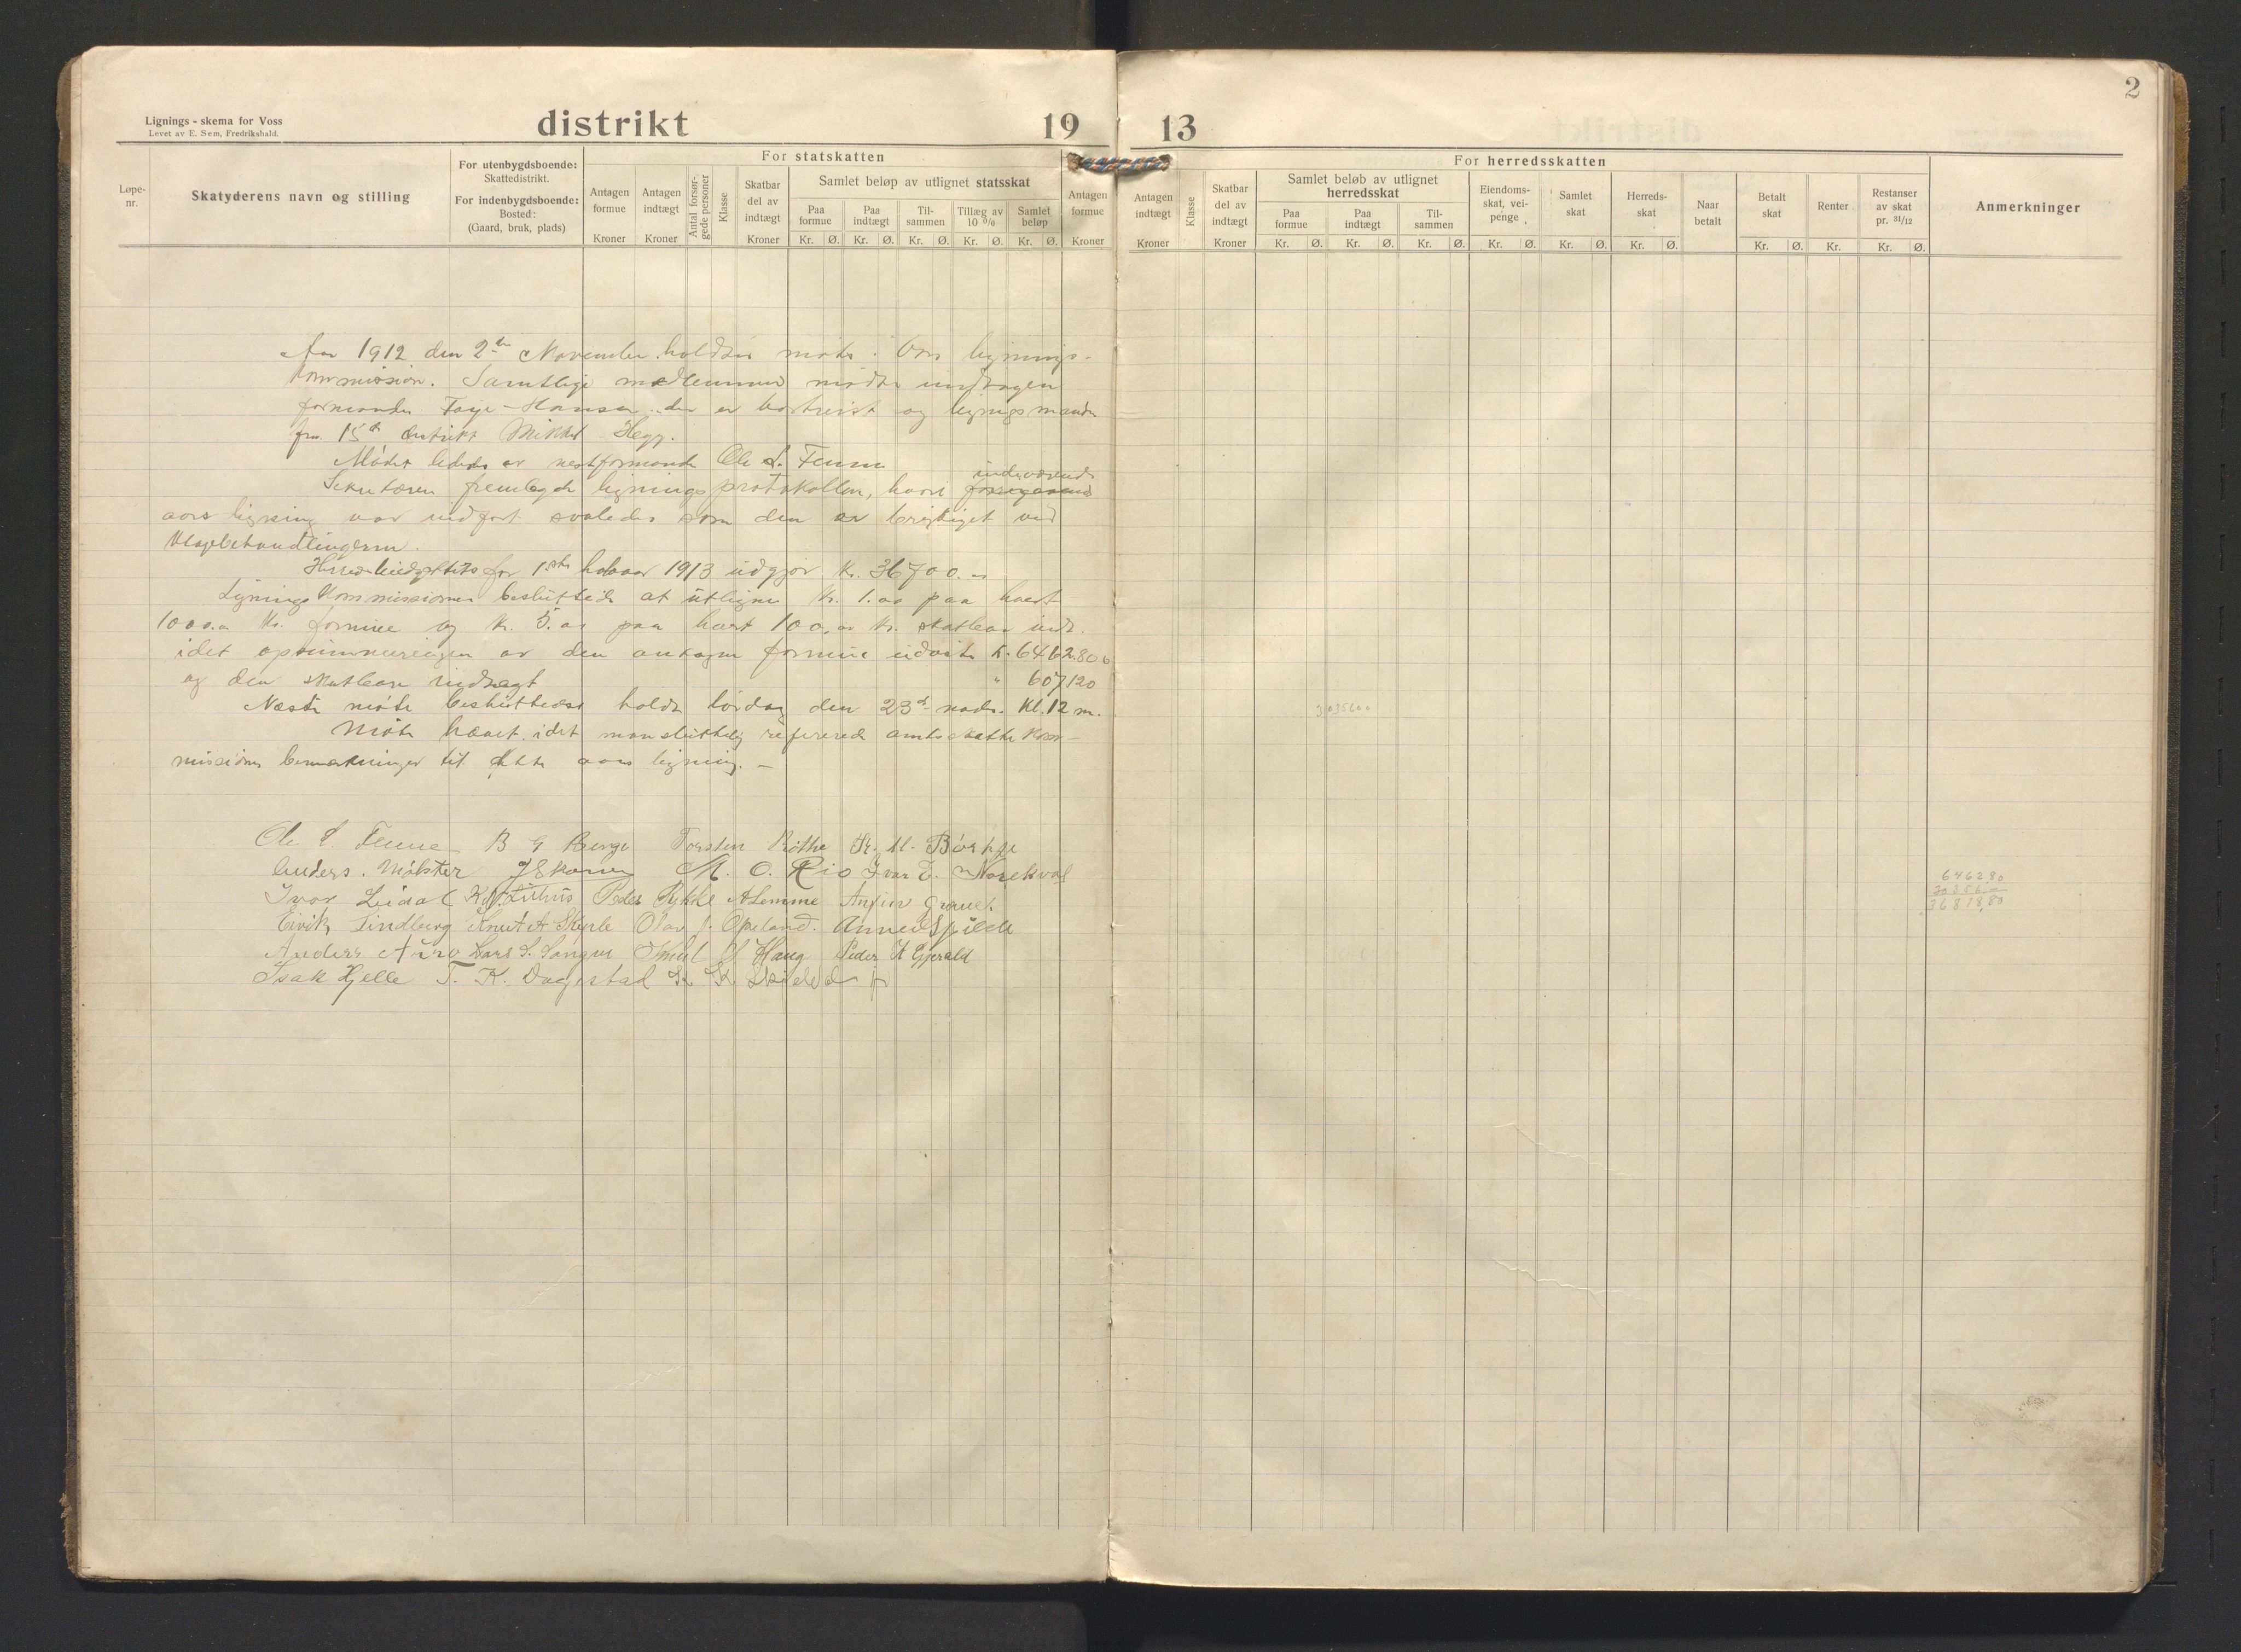 2
Lignings - skema for Voss
Levet av E. Sem, Fredrikshald.
distrikt
19 13
Løpe-
nr.
Skatyderens navn og stilling
For utenbygdsboende:
Skattedistrikt.
For indenbygdsboende:
Bosted:
(Gaard, bruk, plads)
For statskatten
Antagen
formue
Kroner
Antagen
indtægt
Kroner
Antal forsør-
gede personer
Klasse
Skatbar
del av
indtægt
Kroner
Samlet beløp av utlignet statsskat
Paa
formue
Kr. Ø.
Paa
indtægt
Kr. Ø.
Til-
sammen
Kr. Ø.
Tillæg av
10 %
Kr. Ø.
Samlet
beløp
Kr. Ø.
Antagen
formue
Kroner
For herredsskatten
Antagen
indtægt
Kroner
Klasse
Skatbar
del av
indtægt
Kroner
Samlet beløb av utlignet
herredsskat
Paa
formue
Kr. Ø.
Paa
indtægt
Kr. Ø.
Til-
sammen
Kr. Ø.
Eiendoms-
skat, vei-
penge
Kr. Ø.
Samlet
skat
Kr. Ø.
Herreds-
skat
Kr. Ø.
Naar
betalt
Betalt
skat
Kr. Ø.
Renter
Kr.
Restanser
av skat
pr. 31/12
Kr. Ø.
Anmerkninger
Aar 1912 den 2den November holdtes møte i Voss lignings-
kommission. Samtlige medlemmer møtte undtagen
formanden Faye-Hansen der er bortreist og ligningsmanden
fra 15de distrikt Mikkel Hegg.
Mødet lededes av næstformanden Ole S. Fenne
Sekretæren fremlagde ligningsprotokollen, hvori indeværende
aars ligning var indført saaledes som den er berigtiget ved
klagebehandlingerne.
for 1ste halvaar 1913 udgjør kr. 36700.00
Ligningskommissionen besluttede at utligne kr. 1.00 paa hvert
1000.00 kr. formue og kr. 5.00 paa hvert 100.00 kr. skatbar indt.
idet opsummeringen av den antagne formue udviste kr. 6462.800
og den skatbare indtægt " 607120
Næste møte besluttedes holdt lørdag den 23de nov. Kl. 12 m.
Møte hævet idet man sluttelig refererede amtsskattekom-
missionens bemærkninger til dette aars ligning. -
303560
Ole S. Fenne B G Berge Torsten Røthe
Anders Mølster M. O. Rio Ivar E. Norekval
Ivar Leidal Peder Rykke A Lemme Anfin Graue
Eirik Lindberg Knut A Skjple Olav J. Opeland.
Anders Arro Lars L. Songve Haug Peder A Gjerald
Isak Kjelle T. K. Dagestad K K Skjelde jr
6462 80
30356 00
36818,80